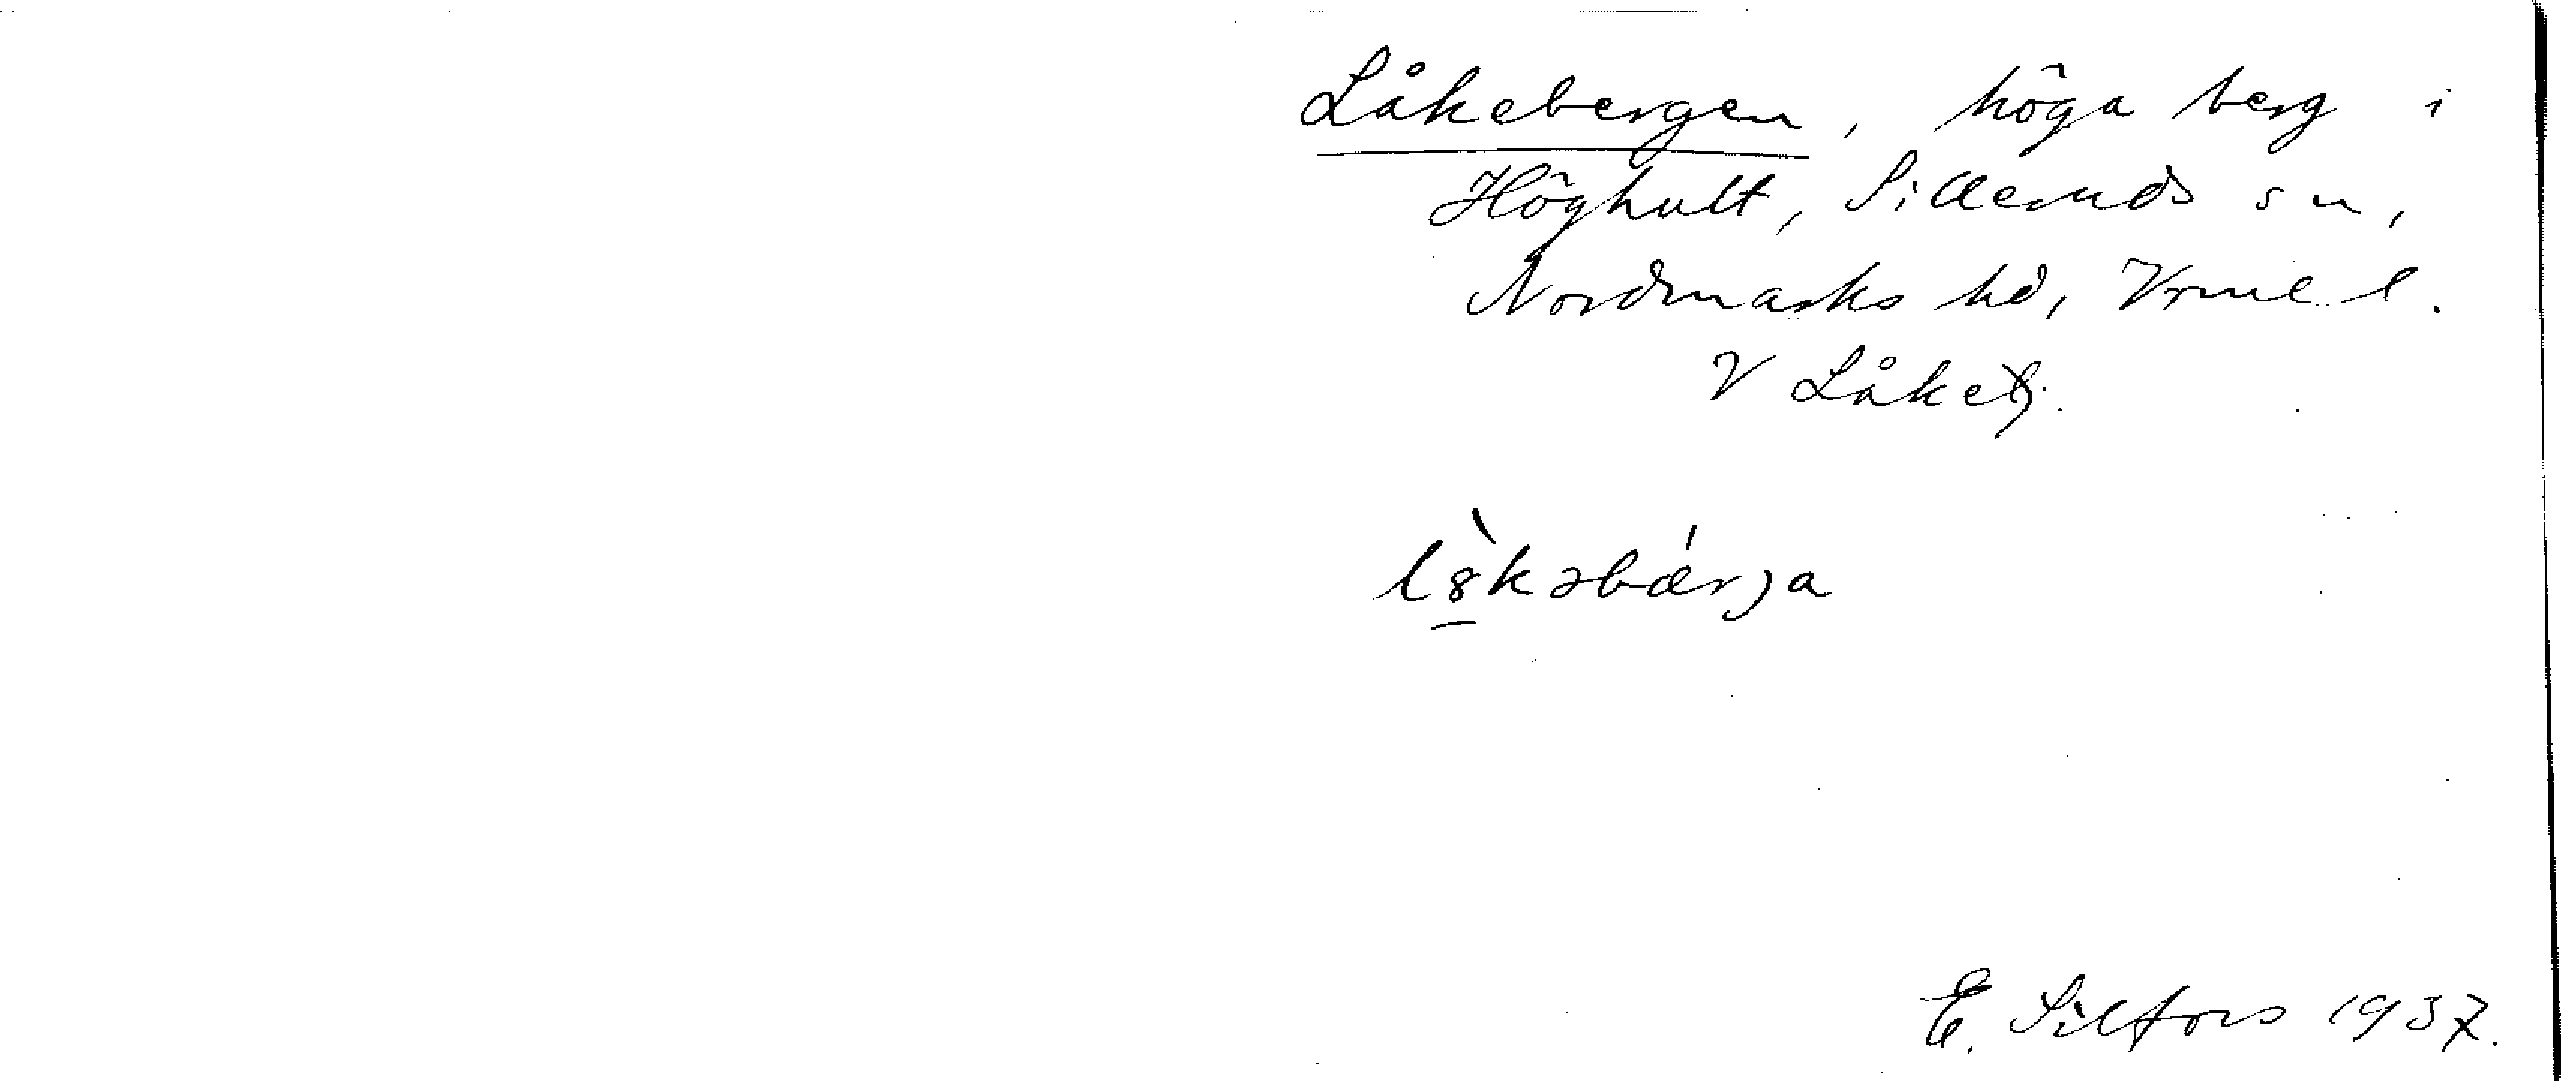 Låkebergen, höga berg i
Höghult, Silleruds sn,
Nordmarks hd, Vrml. l.
V Låketj.
lo᷈kəbærja
E. Silfors 1937.